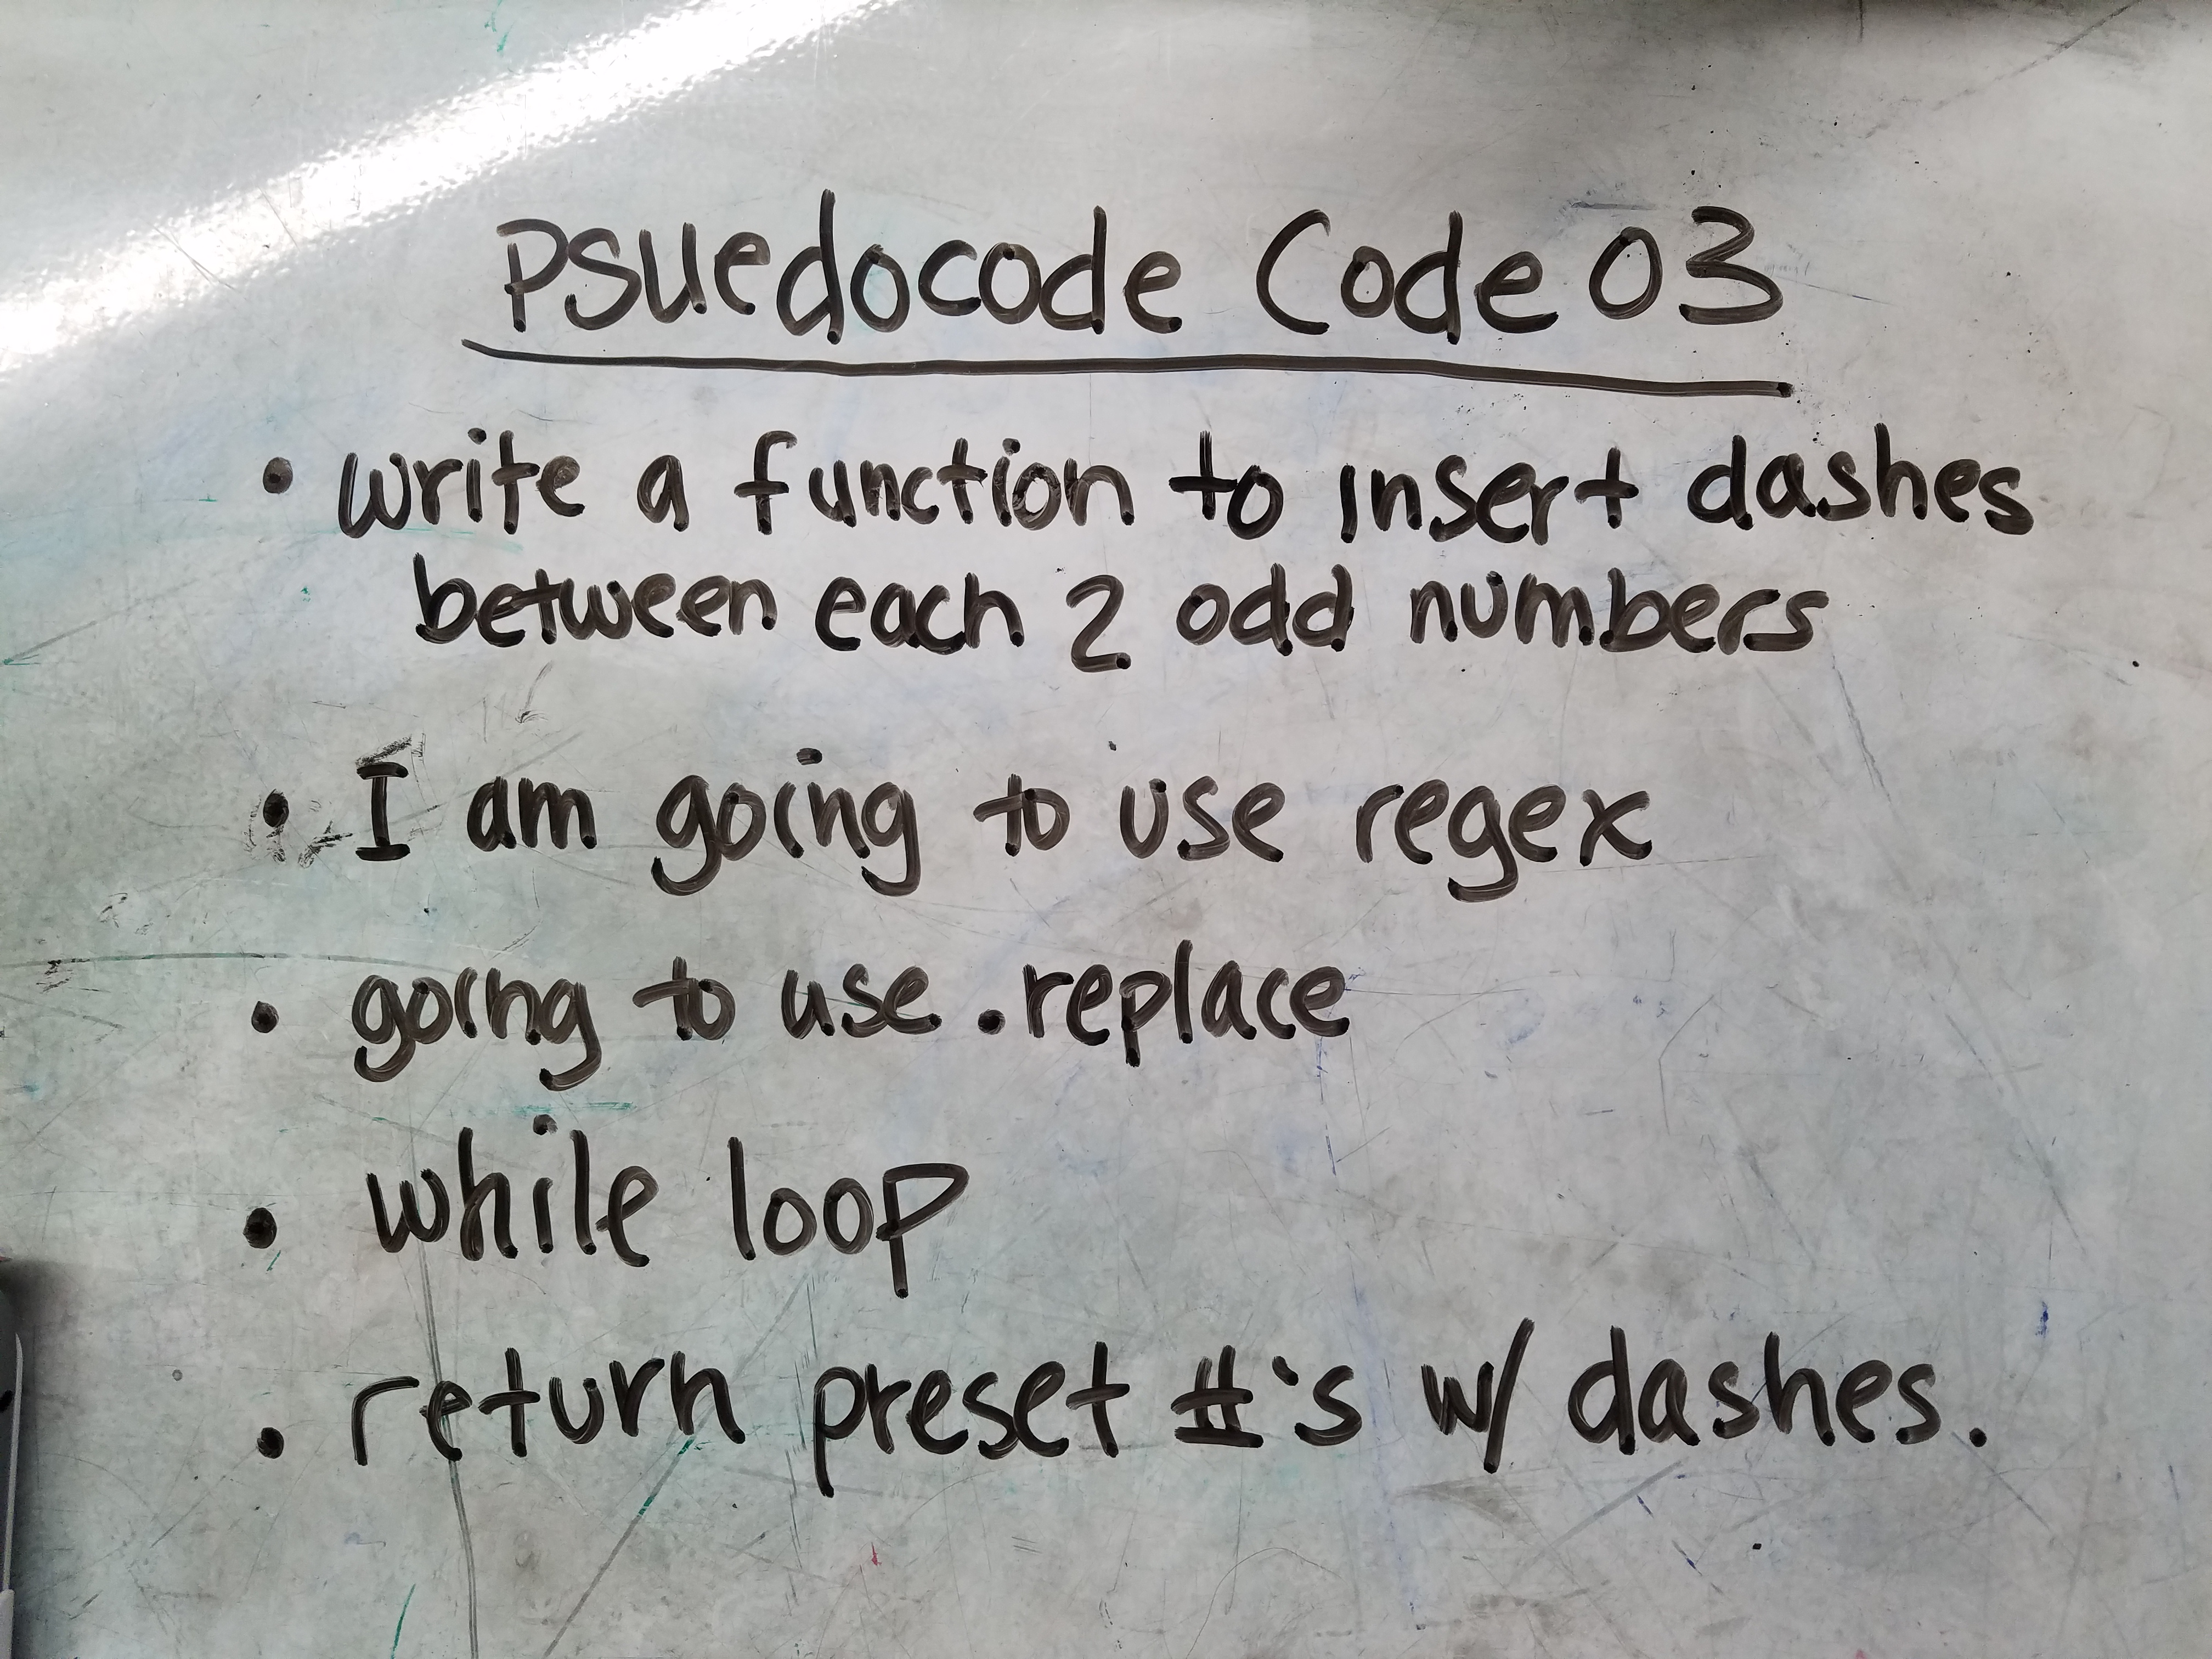 Psuedocode Code 03
• write a function to insert dashes
between each 2 odd numbers
• I am going to use regex
• going to use .replace
• while loop
• return preset #'s w/ dashes.